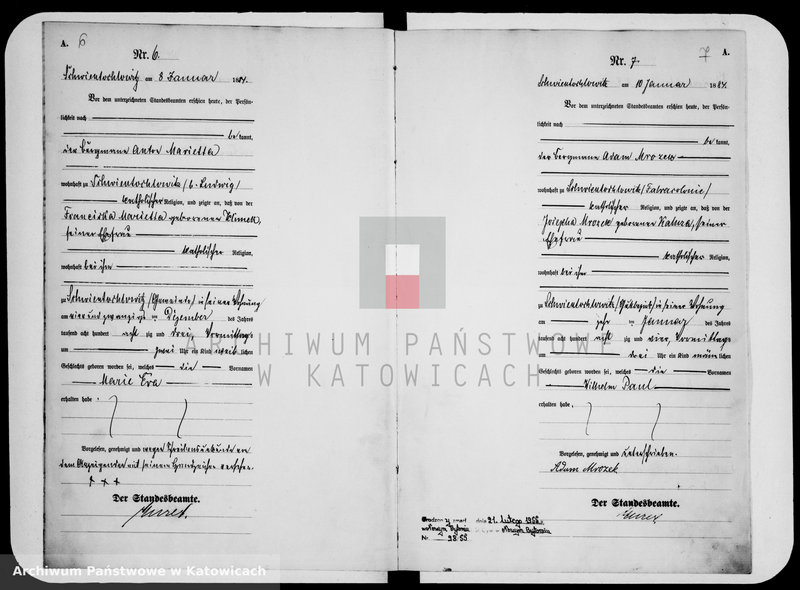 A. 6
Nr. 6.
Schwientochlowitz am 8 Januar 1884.
Vor dem unterzeichneten Standesbeamten erschien heute, der Persön-
lichkeit nach
be kannt,
der Bergmann Anton Marietta
wohnhaft zu Schwientochlowitz
katholischer Religion, und zeigte an, daß von der
Franciska Marietta geborenen
seiner Ehefrau
katholischer Religion,
wohnhaft bei ihm
zu Schwientochlowitz in seiner Wohnung
am vier und zwanzigsten Dezember des Jahres
tausend acht hundert acht zig und drei Vormittags
um zwei Uhr ein Kind weib lichen
Geschlechts geboren worden sei, welches die Vornamen
Marie Eva
erhalten habe.
Vorgelesen, genehmigt und wegen Schreibensunkunde von
dem Anzeigenden mit seinem Handzeichen versehen.
+ + +
Der Standesbeamte.
7 A.
Nr. 7.
Schwientochlowitz am 10 Januar 1884.
Vor dem unterzeichneten Standesbeamten erschien heute, der Persön-
lichkeit nach
be kannt,
der Bergmann Adam Mrozek
wohnhaft zu Schwientochlowitz
katholischer Religion, und zeigte an, daß von der
Josepha Mrozek geborenen Kaluza, seiner
Ehefrau
katholischer Religion,
wohnhaft bei ihm
zu Schwientochlowitz in seiner Wohnung
am Januar des Jahres
tausend acht hundert acht zig und vier, Vormittags
um drei Uhr ein Kind männ lichen
Geschlechts geboren worden sei, welches die Vornamen
Wilhelm Paul
erhalten habe.
Vorgelesen, genehmigt und unterschrieben.
Adam Mrozek
Der Standesbeamte.
dnia 21 lutego
Nr.
ARCHIWUM PAŃSTWOWE
W KATOWICACH
Archiwum Państwowe w Katowicach
Archiwum Państwowe w Katowicach